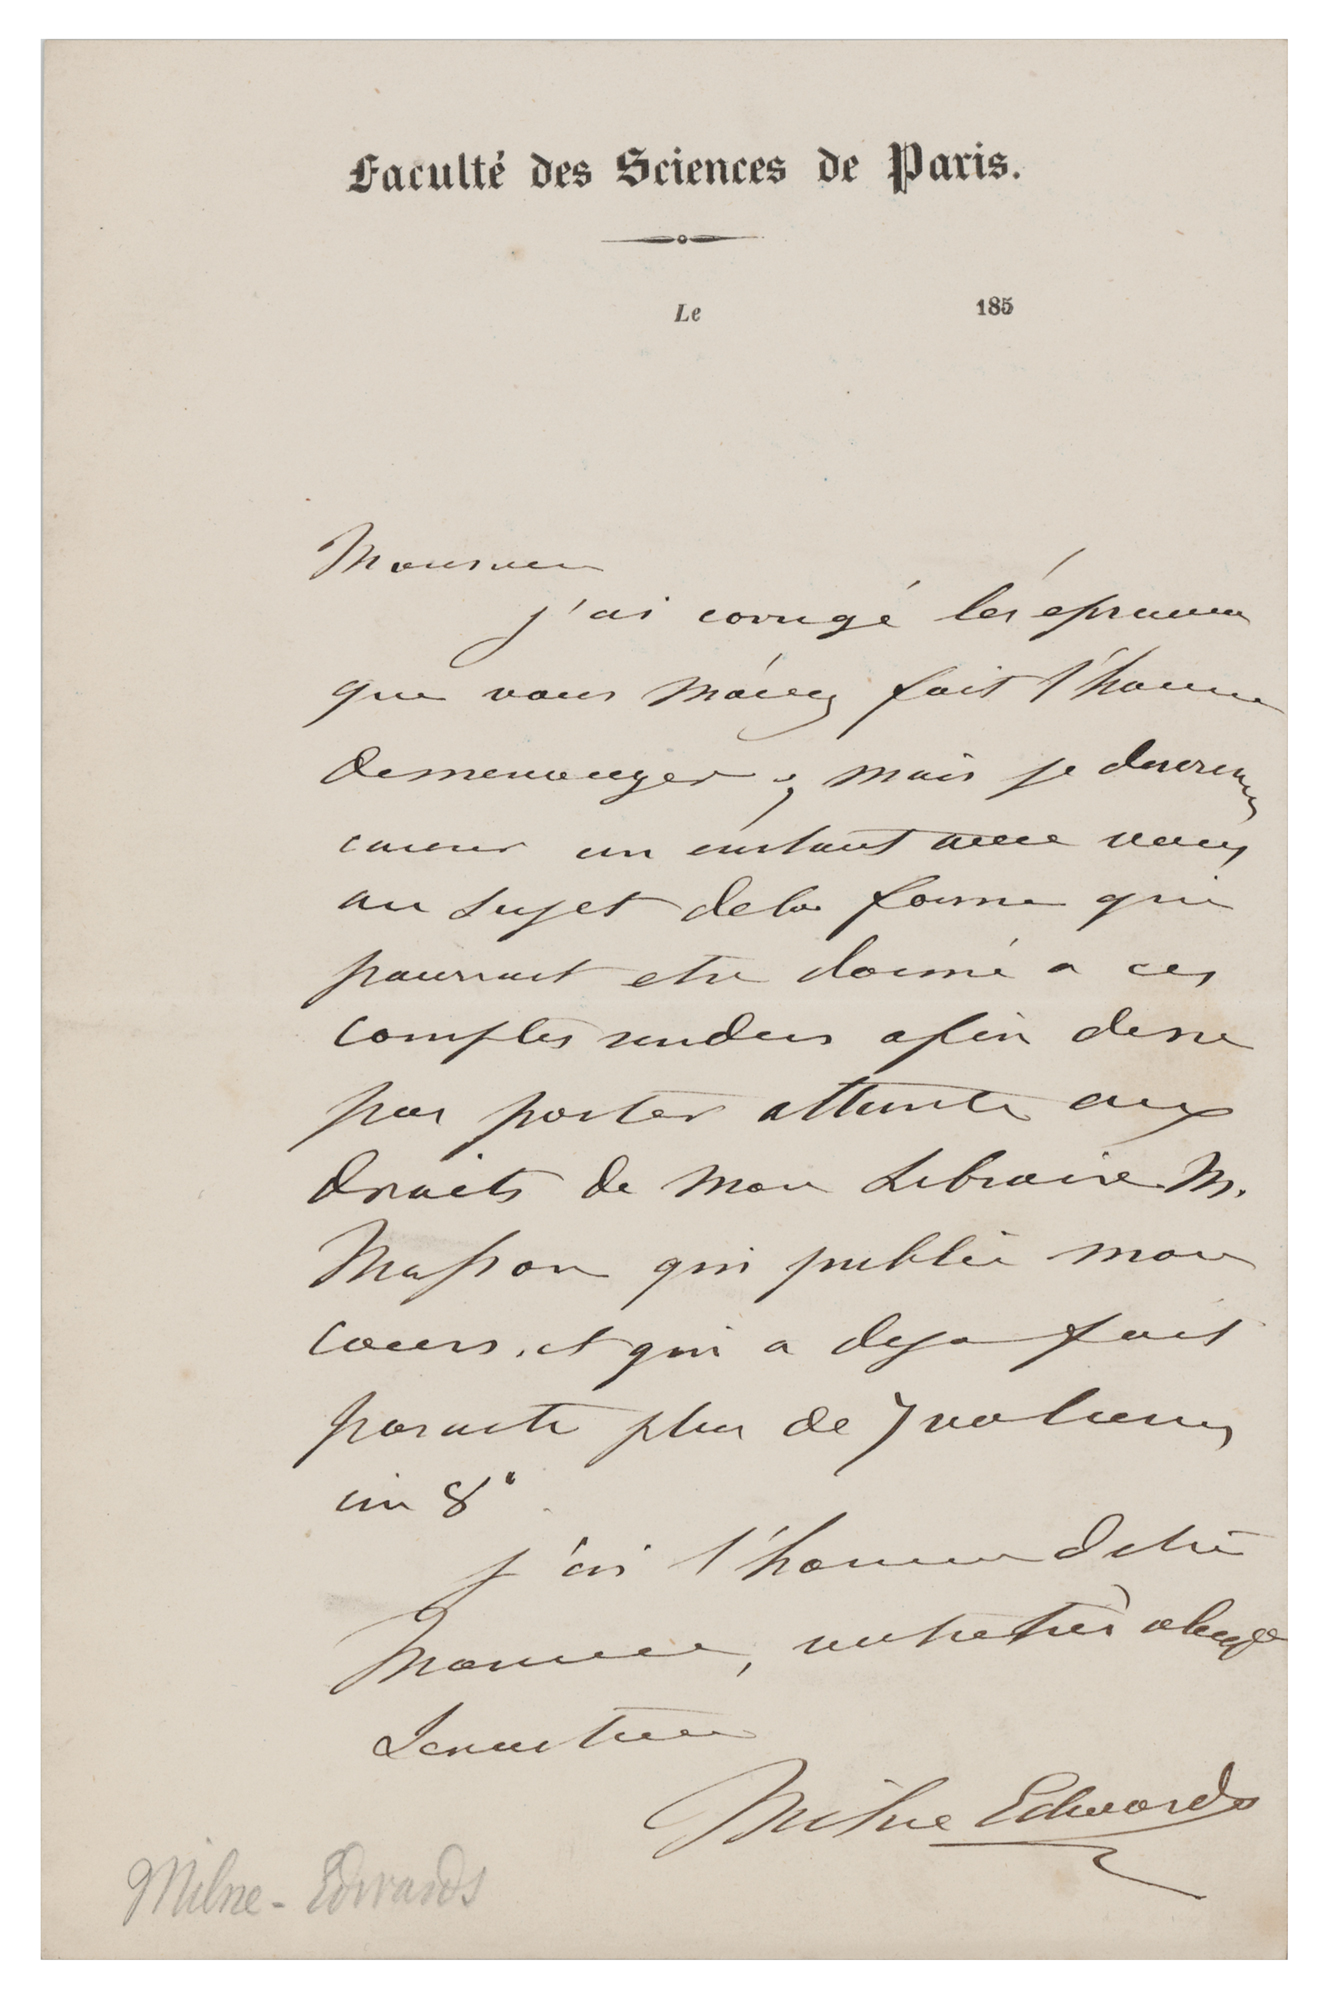 Faculté des Sciences de Paris.
Le 185
Monsieur
j'ai corrigé les épreuves
que vous m'avez fait l'honneur
de m'envoyer ; mais je désirerais
causer un instant avec vous
au sujet de la forme qui
pourrait etre donné a ces
comptes rendus afin de ne
pas porter atteinte aux
droits de mon Libraire M.
Masson qui publie mon
cours, et qui a deja fait
paraitre plus de 7 volumes
in 8°.
j'ai l'honneur d'etre
Monsieur, votre très obligé
Serviteur
Milne Edwards
Milne-Edwards